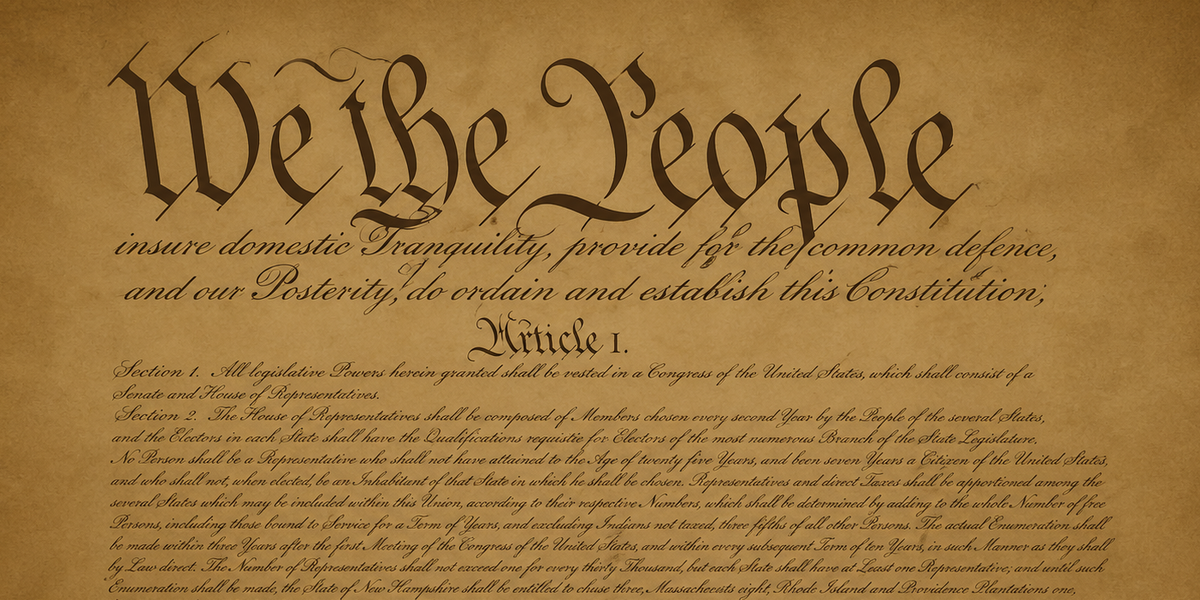 We the People
insure domestic Tranquility, provide for the common defence,
and our Posterity, do ordain and establish this Constitution;
Article I.
Section 1. All legislative Powers herein granted shall be vested in a Congress of the United States, which shall consist of a
Senate and House of Representatives.
Section 2. The House of Representatives shall be composed of Members chosen every second Year by the People of the several States,
and the Electors in each State shall have the Qualifications requistie for Electors of the most numerous Branch of the State Legislature.
No Person shall be a Representative who shall not have attained to the Age of twenty five Years, and been seven Years a Citizen of the United States,
and who shall not, when elected, be an Inhabilunt of that State in which he shall be chosen. Representatives and direct Taxes shall be apportioned among the
several States which may be included within this Union, according to their respective Numbers, which shall be determined by adding to the whole Number of free
Persons, including those bound to Service for a Term of Years, and excluding Indians not taxed, three fifths of all other Persons. The actual Enumeration shall
be made within three Years after the first Meeting of the Congress of the United States, and within every subsequent Term of ten Years, in such Manner as they shall
by Law direct. The Number of Representatives shall not exceed one for every thirty Thousand, but each State shall have at Least one Representative; and until such
Enumeration shall be made, the State of New Hampshire shall be entitled to chuse three, Massachusetts eight, Rhode Island and Providence Plantations one,